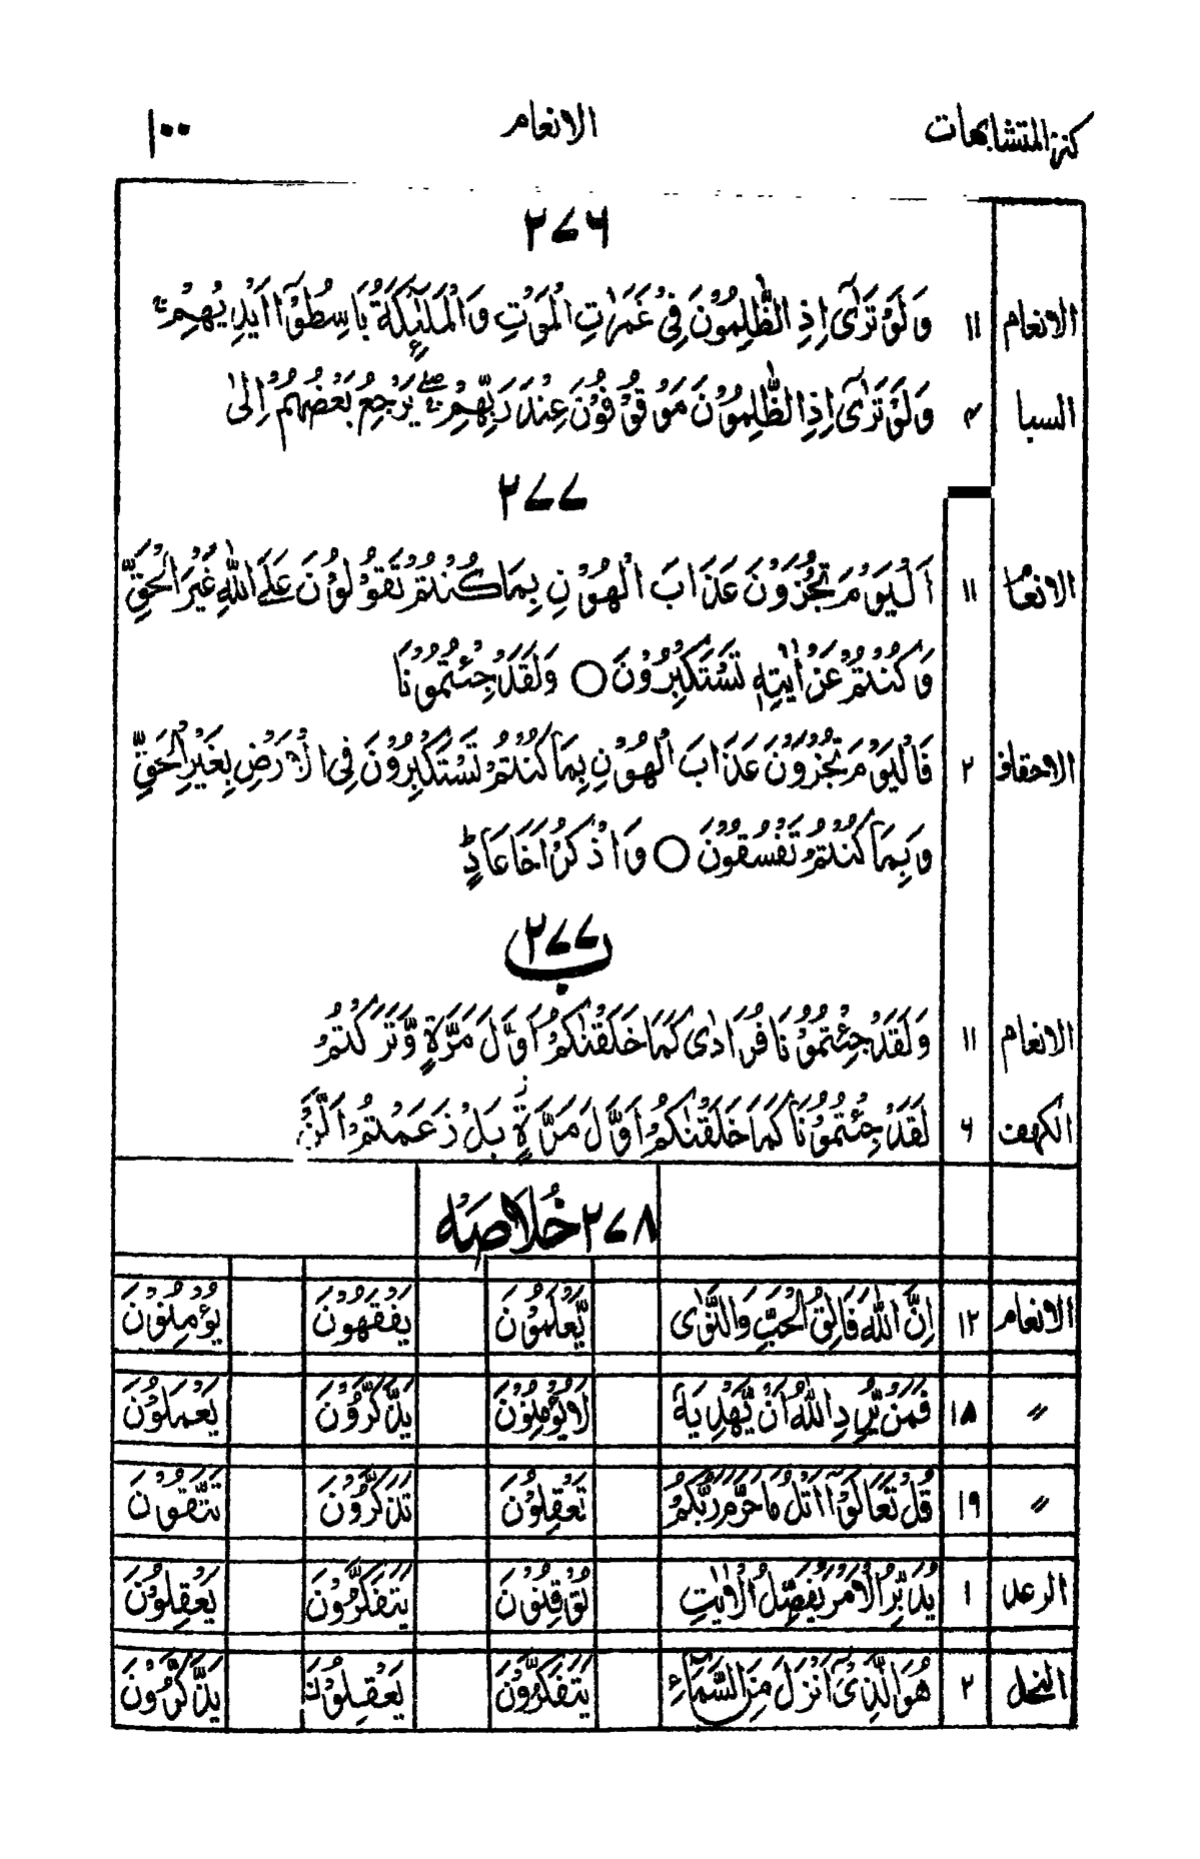 كنز المتشابهات الانعام ١٠٠
٢٧٦
الانعام ١١ وَلَوْ تَرٰٓى اِذِ الظّٰلِمُوْنَ فِىْ غَمَرٰتِ الْمَوْتِ وَالْمَلٰٓئِكَةُ بَاسِطُوْٓا اَيْدِيْهِمْ ج
السبا ٤ وَلَوْ تَرٰٓى اِذِ الظّٰلِمُوْنَ مَوْقُوْفُوْنَ عِنْدَ رَبِّهِمْ ج صلے يَرْجِعُ بَعْضُهُمْ اِلٰى
٢٧٧
الانعام ١١ اَلْيَوْمَ تُجْزَوْنَ عَذَابَ الْهُوْنِ بِمَا كُنْتُمْ تَقُوْلُوْنَ عَلَى اللّٰهِ غَيْرَ الْحَقِّ
وَكُنْتُمْ عَنْ اٰيٰتِهٖ تَسْتَكْبِرُوْنَ ○ وَلَقَدْ جِئْتُمُوْنَا
الاحقاف ٢ فَالْيَوْمَ تُجْزَوْنَ عَذَابَ الْهُوْنِ بِمَا كُنْتُمْ تَسْتَكْبِرُوْنَ فِى الْاَرْضِ بِغَيْرِ الْحَقِّ
وَبِمَا كُنْتُمْ تَفْسُقُوْنَ ○ وَاذْكُرْ اَخَا عَادٍ ط
٢٧٧ ب
الانعام ١١ وَلَقَدْ جِئْتُمُوْنَا فُرَادٰى كَمَا خَلَقْنٰكُمْ اَوَّلَ مَرَّةٍ وَّتَرَكْتُمْ
الكهف ٦ لَقَدْ جِئْتُمُوْنَا كَمَا خَلَقْنٰكُمْ اَوَّلَ مَرَّةٍ ز بَلْ زَعَمْتُمْ اَلَّنْ
٢٧٨ خُلَاصَه
الانعام ١٢ اِنَّ اللّٰهَ فَالِقُ الْحَبِّ وَالنَّوٰى يَّعْلَمُوْنَ يَفْقَهُوْنَ يُؤْمِنُوْنَ
〃 ١٥ فَمَنْ يُّرِدِ اللّٰهُ اَنْ يَّهْدِيَهٗ لَا يُؤْمِنُوْنَ يَذَّكَّرُوْنَ يَعْمَلُوْنَ
〃 ١٩ قُلْ تَعَالَوْا اَتْلُ مَا حَرَّمَ رَبُّكُمْ تَعْقِلُوْنَ تَذَكَّرُوْنَ تَتَّقُوْنَ
الرعد ١ يُدَبِّرُ الْاَمْرَ يُفَصِّلُ الْاٰيٰتِ تُوْقِنُوْنَ يَتَفَكَّرُوْنَ يَعْقِلُوْنَ
النحل ٢ هُوَ الَّذِىْٓ اَنْزَلَ مِنَ السَّمَآءِ يَتَفَكَّرُوْنَ يَعْقِلُوْنَ يَذَّكَّرُوْنَ